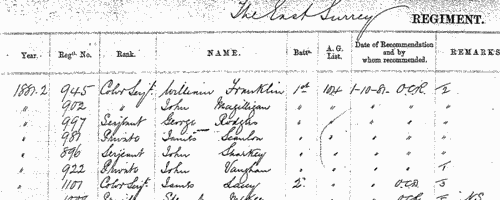 The East Surrey REGIMENT.
Year. Regtl. No. Rank. NAME. Battn. A. G. List. Date of Recommendation and by whom recommended. REMARKS
1881-2 945 Color Serjt. William Franklin 1st 104 1-10-81. O.C.R. 2
" 902 " John Magilligan " " " " "
" 997 Serjeant George Rodgers " " " "
" 987 Private James Scanlon " " " "
" 896 Serjeant John Sharkey " " " "
" 922 Private John Vaughan " " " " 1
" 1101 Color Serjt. James Lacey 2 " " O.C.R. 3